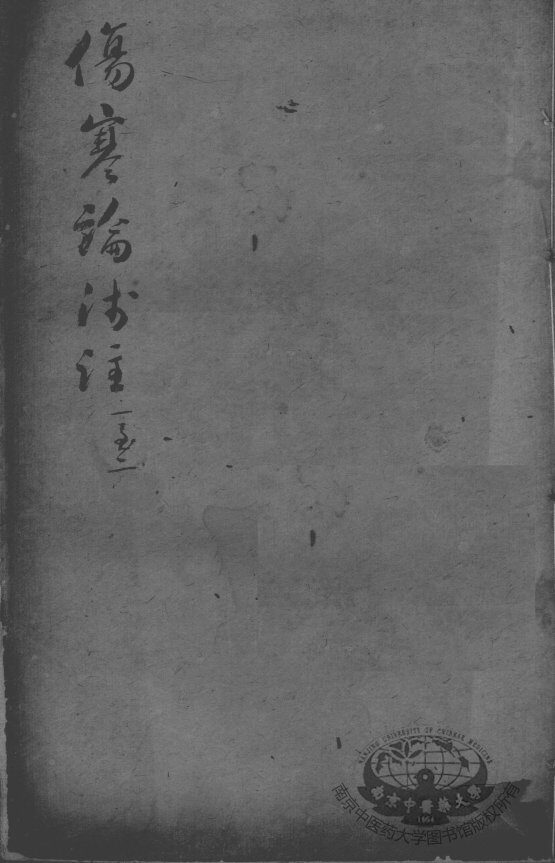 傷寒論浅註
一至二
NANJING UNIVERSITY OF CHINESE MEDICINE
南京中醫藥大學
1954
南京中医药大学图书馆版权所有